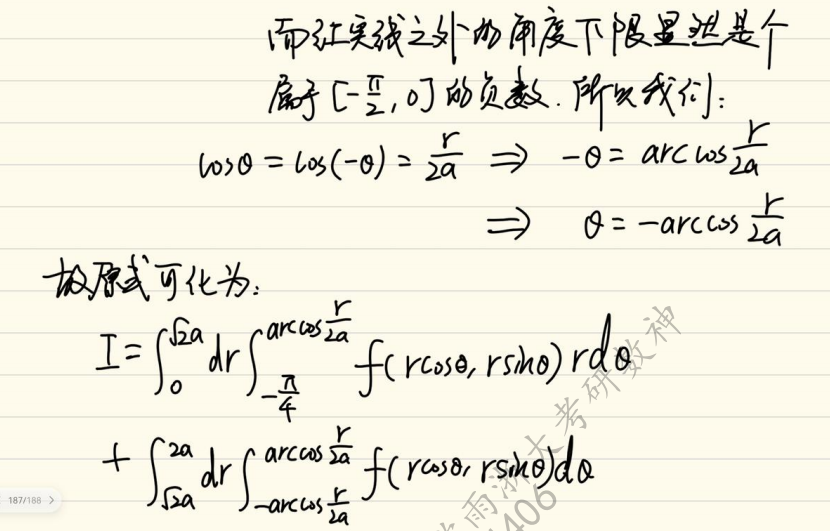 而红实线之外的角度下限显然是个
属于[-π/2, 0]的负数. 所以我们:
cosθ = cos(-θ) = r/2a ⇒ -θ = arccos r/2a
⇒ θ = -arccos r/2a
故原式可化为:
I = ∫_0^{√2a} dr ∫_{-π/4}^{arccos r/2a} f(rcosθ, rsinθ) r dθ
+ ∫_{√2a}^{2a} dr ∫_{-arccos r/2a}^{arccos r/2a} f(rcosθ, rsinθ) dθ
雨浙大考研数神
406
187/188 >